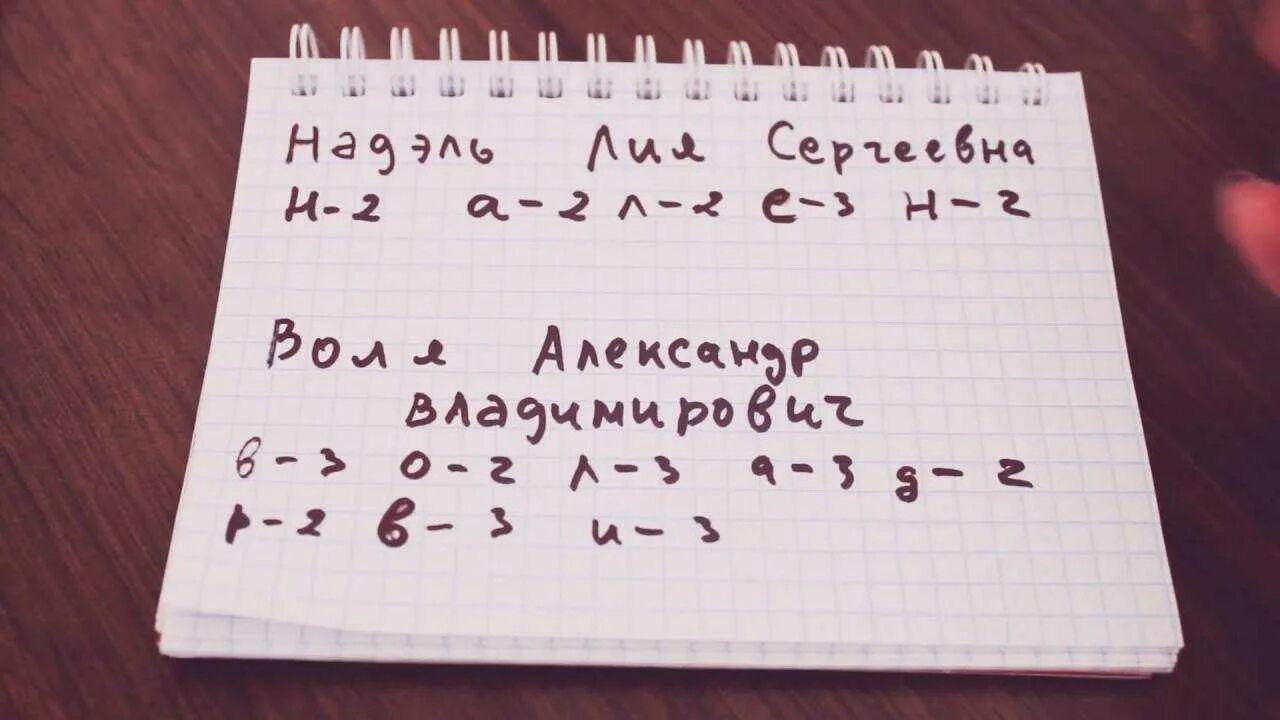 Надэль Лия Сергеевна
н-2 а-2 л-2 е-3 н-2
Воля Александр
владимирович
в-3 о-2 л-3 а-3 д-2
р-2 в-3 и-3